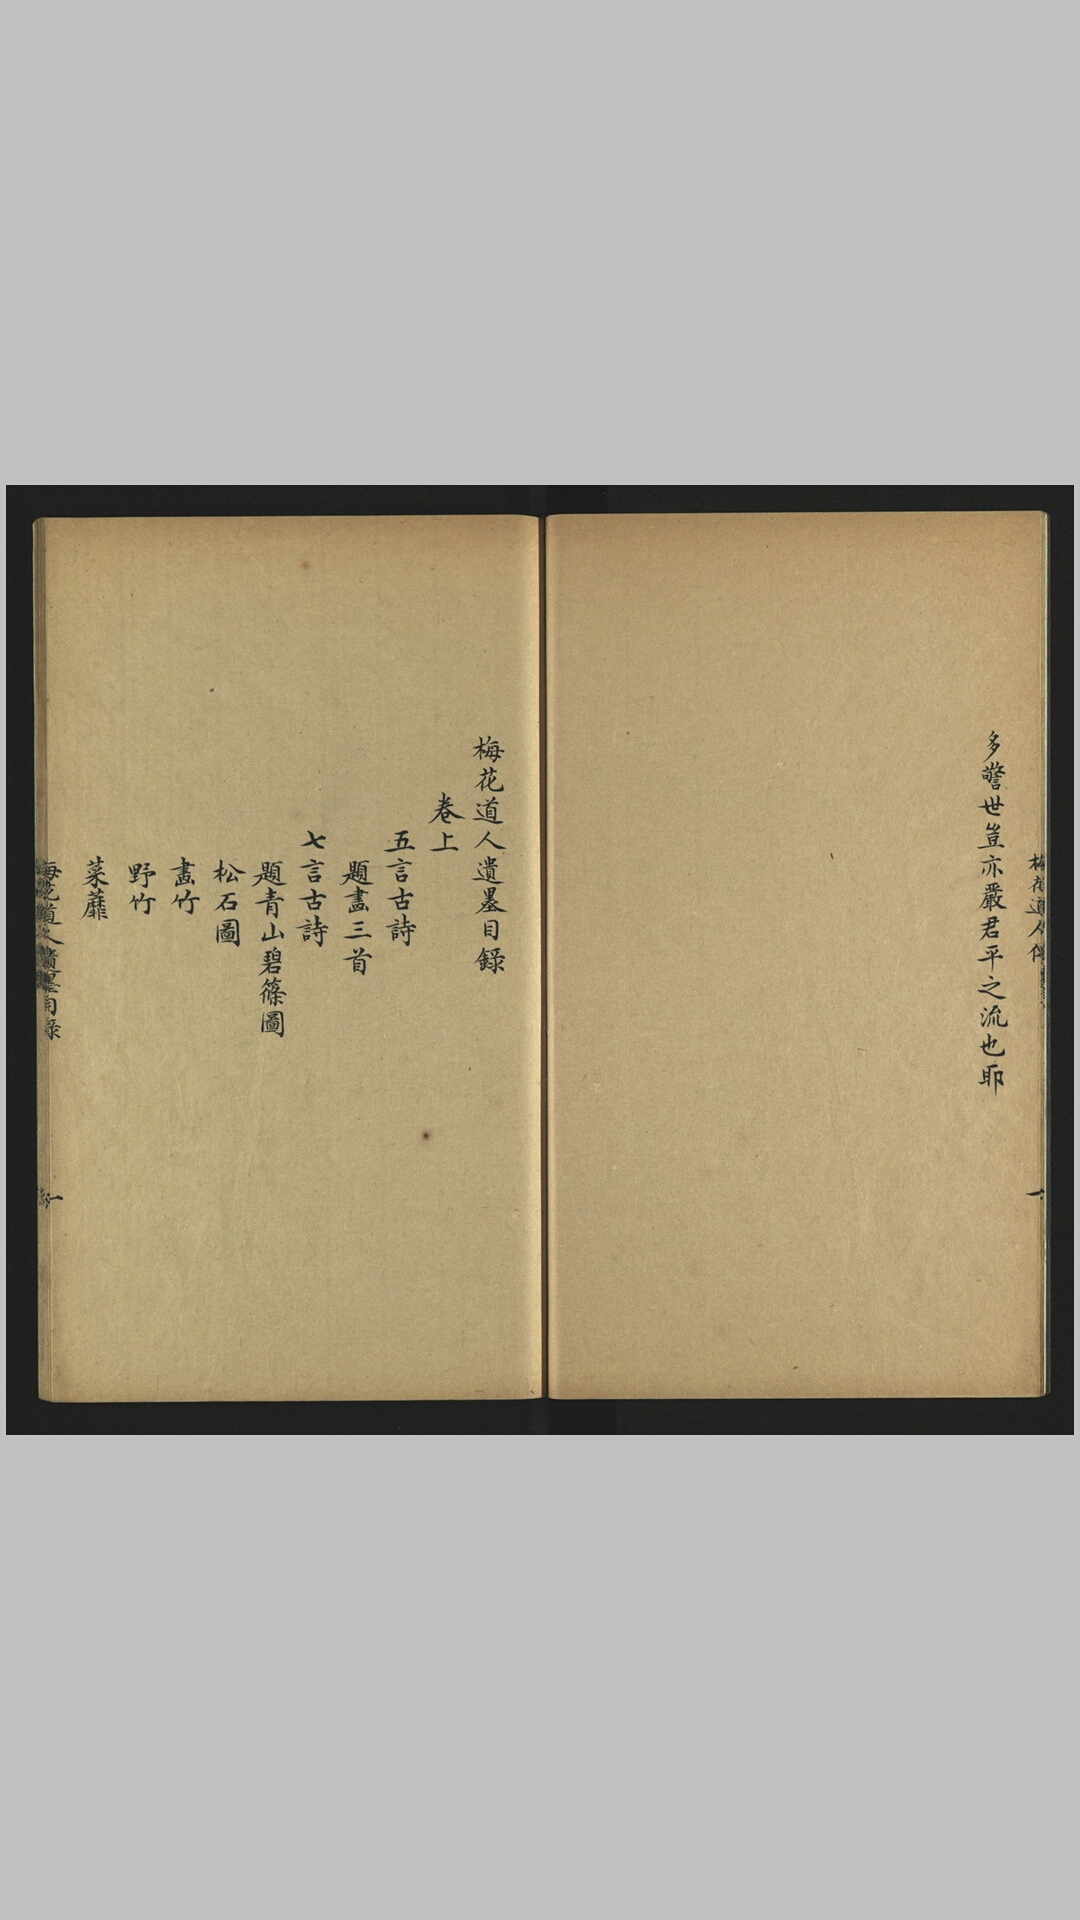 多警世豈亦嚴君平之流也耶
梅花道人遺墨目錄
卷上
五言古詩
題畫三首
七言古詩
題青山碧篠圖
松石圖
畫竹
野竹
菜蘼
梅花道人遺墨目錄
一